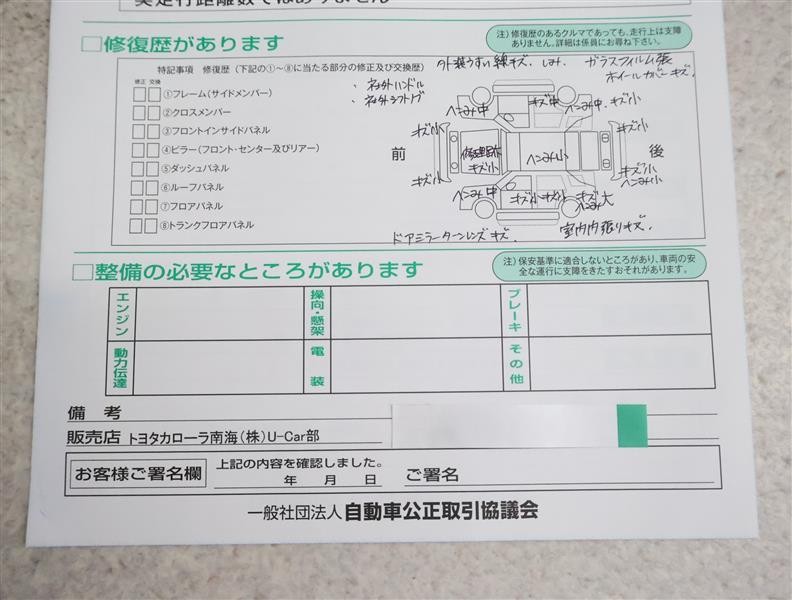 実走行距離数ではありません
□修復歴があります
注）修復歴のあるクルマであっても、走行上は支障
ありません。詳細は係員にお尋ね下さい。
特記事項 修復歴（下記の①～⑧に当たる部分の修正及び交換歴）
修正 交換
①フレーム（サイドメンバー）
②クロスメンバー
③フロントインサイドパネル
④ピラー（フロント・センター及びリアー）
⑤ダッシュパネル
⑥ルーフパネル
⑦フロアパネル
⑧トランクフロアパネル
、社外ハンドル
、社外シフトノブ
外装うすい線キズ、しみ、ガラスフィルム張
ホイールカバーキズ、
ヘこみ中 キズ中 ヘこみ中、キズ小
キズ小 キズ小
前 修理跡 キズ小 ヘこみ小 後
キズ小 キズ小 ヘこみ小
ヘこみ中 キズ小 キズ小 キズ ヘこみ大
ドアミラーターンレンズキズ、
室内内張りキズ、
□整備の必要なところがあります
注）保安基準に適合しないところがあり、車両の安
全な運行に支障をきたすおそれがあります。
エンジン 操向・懸架 ブレーキ
動力伝達 電装 その他
備 考
販売店 トヨタカローラ南海（株）U-Car部
お客様ご署名欄 上記の内容を確認しました。
年 月 日 ご署名
一般社団法人 自動車公正取引協議会